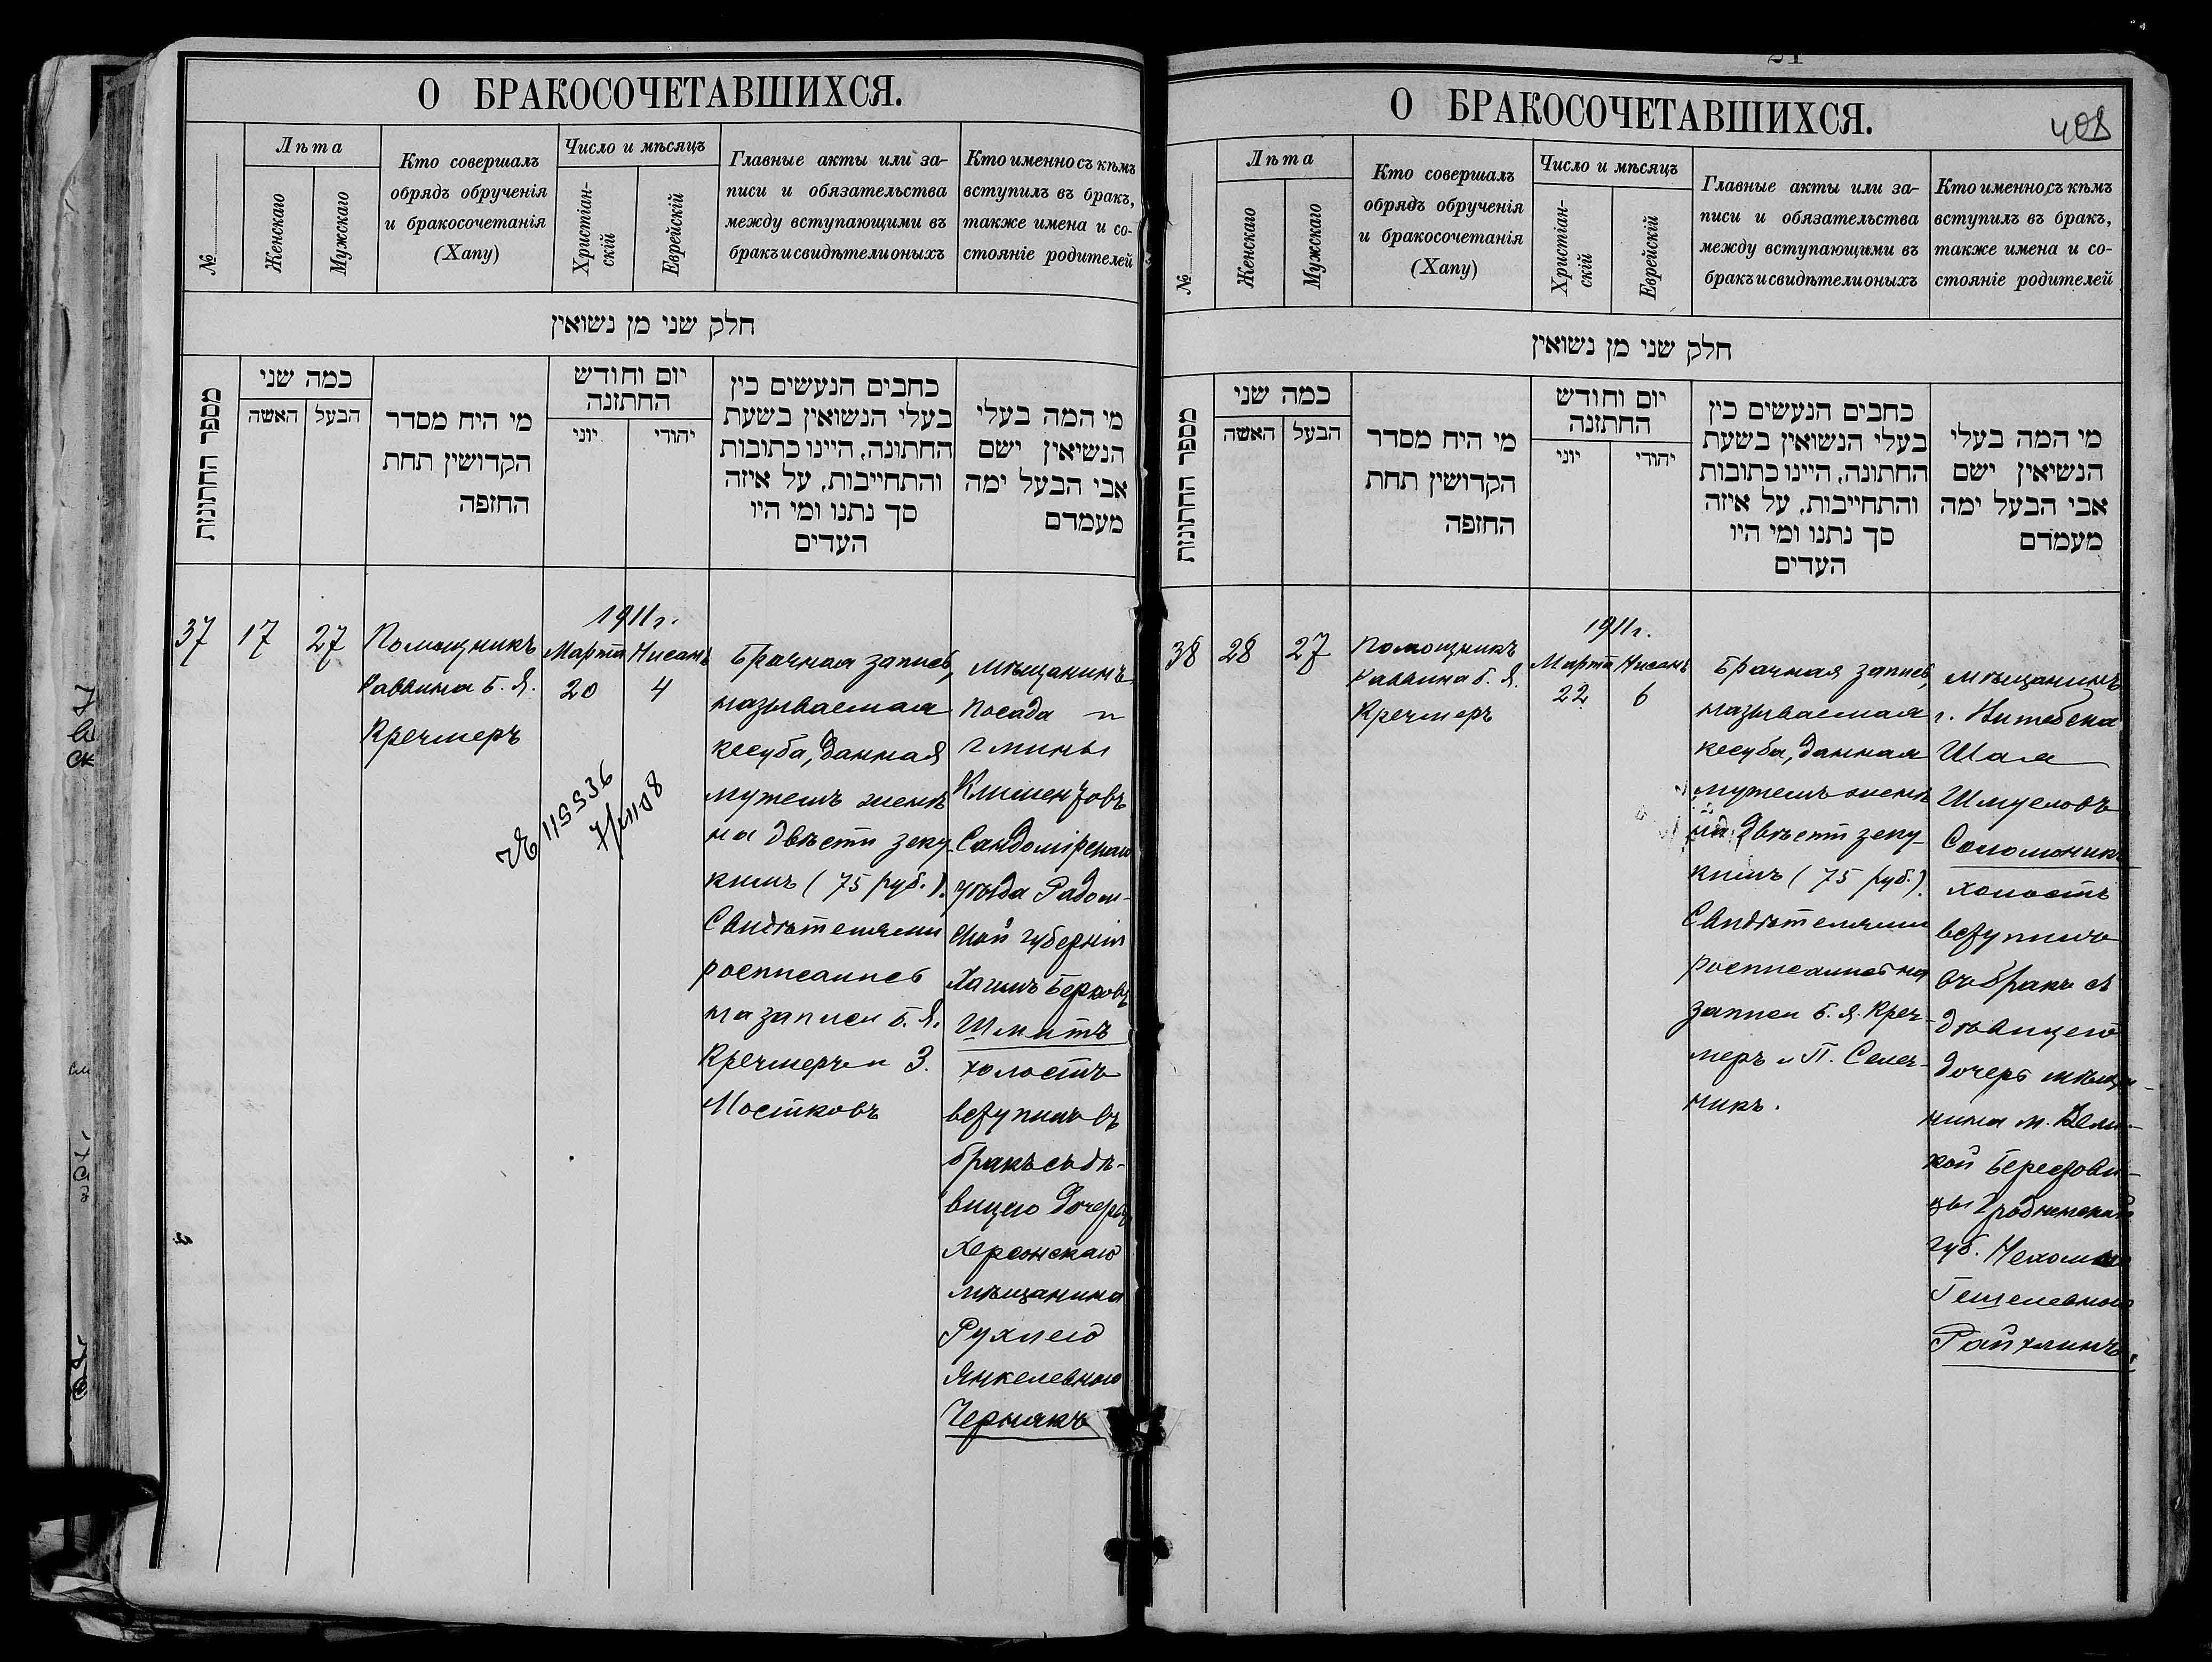 О БРАКОСОЧЕТАВШИХСЯ.
№
Лѣта
Женскаго
Мужскаго
Кто совершалъ
обрядъ обрученія
и бракосочетанія
(Хапу)
Число и мѣсяцъ
Христіан-
скій
Еврейскій
Главные акты или за-
писи и обязательства
между вступающими въ
бракъ и свидѣтели оныхъ
Кто именно съ кѣмъ
вступилъ въ бракъ,
также имена и со-
стояніе родителей
חלק שני מן נשואין
מספר החתונות
כמה שני
האשה
הבעל
מי היח מסדר
הקדושין תחת
החזפה
יום וחודש
החתזנה
יוני
יהודי
כחבים הנעשים כין
בעלי הנשואין בשעת
החתונה, היינו כתובות
והתחייבות, על איזה
סך נתנו ומי היו
העדים
מי המה בעלי
הנשיאין ישם
אבי הבעל ימה
מעמדם
37
17
27
Помощникъ
Раввина Б. Я.
Кречмеръ
1911 г.
Марта
20
Нисанъ
4
Брачная запись,
называемая
кесуба, данная
мужемъ женѣ
на двѣсти зеку-
кимъ (75 руб.).
Свидѣтелями
росписались
на записи Б. Я.
Кречмеръ и З.
Мостковъ
мѣщанинъ
посада и
гмины
Климентовъ
Сандомірскаго
уѣзда Радом-
ской губерніи
Хаимъ Берковъ
Шмитъ
холостъ
вступилъ въ
бракъ съ дѣ-
вицею дочерью
Херсонскаго
мѣщанина
Рухлею
Янкелевною
Чернякъ
119336
О БРАКОСОЧЕТАВШИХСЯ.
408
№
Лѣта
Женскаго
Мужскаго
Кто совершалъ
обрядъ обрученія
и бракосочетанія
(Хапу)
Число и мѣсяцъ
Христіан-
скій
Еврейскій
Главные акты или за-
писи и обязательства
между вступающими въ
бракъ и свидѣтели оныхъ
Кто именно съ кѣмъ
вступилъ въ бракъ,
также имена и со-
стояніе родителей
חלק שני מן נשואין
מספר החתונות
כמה שני
האשה
הבעל
מי היח מסדר
הקדושין תחת
החזפה
יום וחודש
החתזנה
יוני
יהודי
כחבים הנעשים כין
בעלי הנשואין בשעת
החתונה, היינו כתובות
והתחייבות, על איזה
סך נתנו ומי היו
העדים
מי המה בעלי
הנשיאין ישם
אבי הבעל ימה
מעמדם
38
28
27
Помощникъ
Раввина Б. Я.
Кречмеръ
1911 г.
Марта
22
Нисанъ
6
Брачная запись,
называемая
кесуба, данная
мужемъ женѣ
на двѣсти зеку-
кимъ (75 руб.).
Свидѣтелями
росписались на
записи Б. Я. Креч-
меръ и П. Селеч-
никъ.
мѣщанинъ
г. Витебска
Шая
Шмуеловъ
Соломоникъ
холостъ
вступилъ
въ бракъ съ
дѣвицею
дочерью мѣща-
нина м. Вели-
кой Берестови-
цы Гродненской
губ. Нехомою
Гешелевною
Райхлинъ.